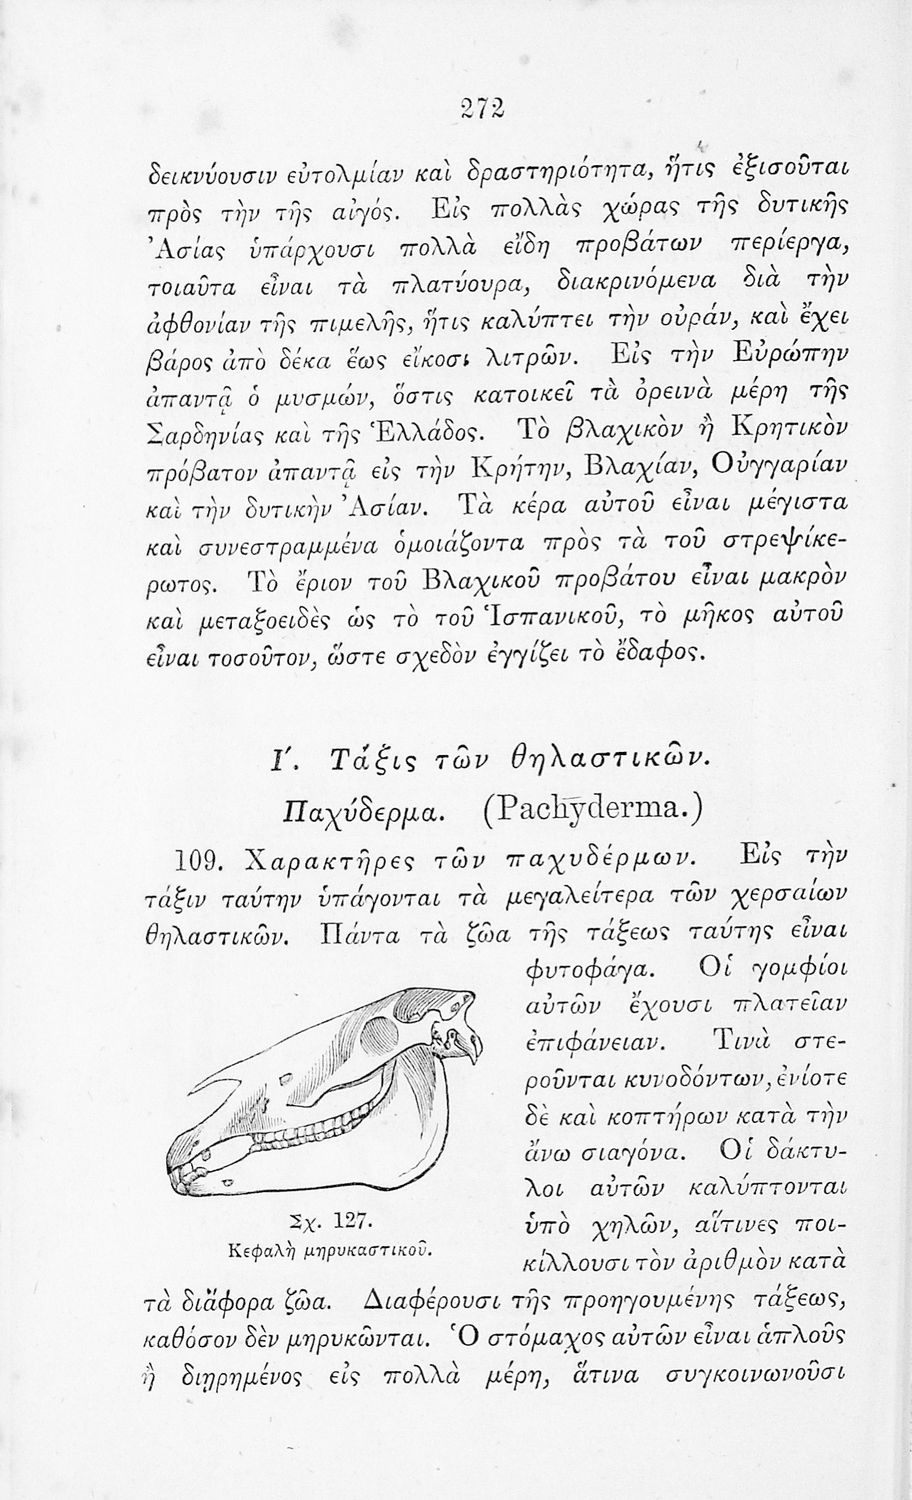 272
δεικνύουσιν εὐτολμίαν καὶ δραστηριότητα, ἥτις ἐξισοῦται
πρὸς τὴν τῆς αἰγός. Εἰς πολλὰς χώρας τῆς δυτικῆς
Ἀσίας ὑπάρχουσι πολλὰ εἴδη προβάτων περίεργα,
τοιαῦτα εἶναι τὰ πλατύουρα, διακρινόμενα διὰ τὴν
ἀφθονίαν τῆς πιμελῆς, ἥτις καλύπτει τὴν οὐράν, καὶ ἔχει
βάρος ἀπὸ δέκα ἕως εἴκοσι λιτρῶν. Εἰς τὴν Εὐρώπην
ἀπαντᾷ ὁ μυσμών, ὅστις κατοικεῖ τὰ ὀρεινὰ μέρη τῆς
Σαρδηνίας καὶ τῆς Ἑλλάδος. Τὸ βλαχικὸν ἢ Κρητικὸν
πρόβατον ἀπαντᾷ εἰς τὴν Κρήτην, Βλαχίαν, Οὑγγαρίαν
καὶ τὴν δυτικὴν Ἀσίαν. Τὰ κέρα αὐτοῦ εἶναι μέγιστα
καὶ συνεστραμμένα ὁμοιάζοντα πρὸς τὰ τοῦ στρεψίκε-
ρωτος. Τὸ ἔριον τοῦ Βλαχικοῦ προβάτου εἶναι μακρὸν
καὶ μεταξοειδὲς ὡς τὸ τοῦ Ἱσπανικοῦ, τὸ μῆκος αὐτοῦ
εἶναι τοσοῦτον, ὥστε σχεδὸν ἐγγίζει τὸ ἔδαφος.
Ι΄. Τάξις τῶν θηλαστικῶν.
Παχύδερμα. (Pachyderma.)
109. Χαρακτῆρες τῶν παχυδέρμων. Εἰς τὴν
τάξιν ταύτην ὑπάγονται τὰ μεγαλείτερα τῶν χερσαίων
θηλαστικῶν. Πάντα τὰ ζῶα τῆς τάξεως ταύτης εἶναι
φυτοφάγα. Οἱ γομφίοι
αὐτῶν ἔχουσι πλατεῖαν
ἐπιφάνειαν. Τινὰ στε-
ροῦνται κυνοδόντων, ἐνίοτε
δὲ καὶ κοπτήρων κατὰ τὴν
ἄνω σιαγόνα. Οἱ δάκτυ-
λοι αὐτῶν καλύπτονται
ὑπὸ χηλῶν, αἵτινες ποι-
κίλλουσι τὸν ἀριθμὸν κατὰ
Σχ. 127.
Κεφαλὴ μηρυκαστικοῦ.
τὰ διάφορα ζῶα. Διαφέρουσι τῆς προηγουμένης τάξεως,
καθόσον δὲν μηρυκῶνται. Ὁ στόμαχος αὐτῶν εἶναι ἁπλοῦς
ἢ διῃρημένος εἰς πολλὰ μέρη, ἅτινα συγκοινωνοῦσι